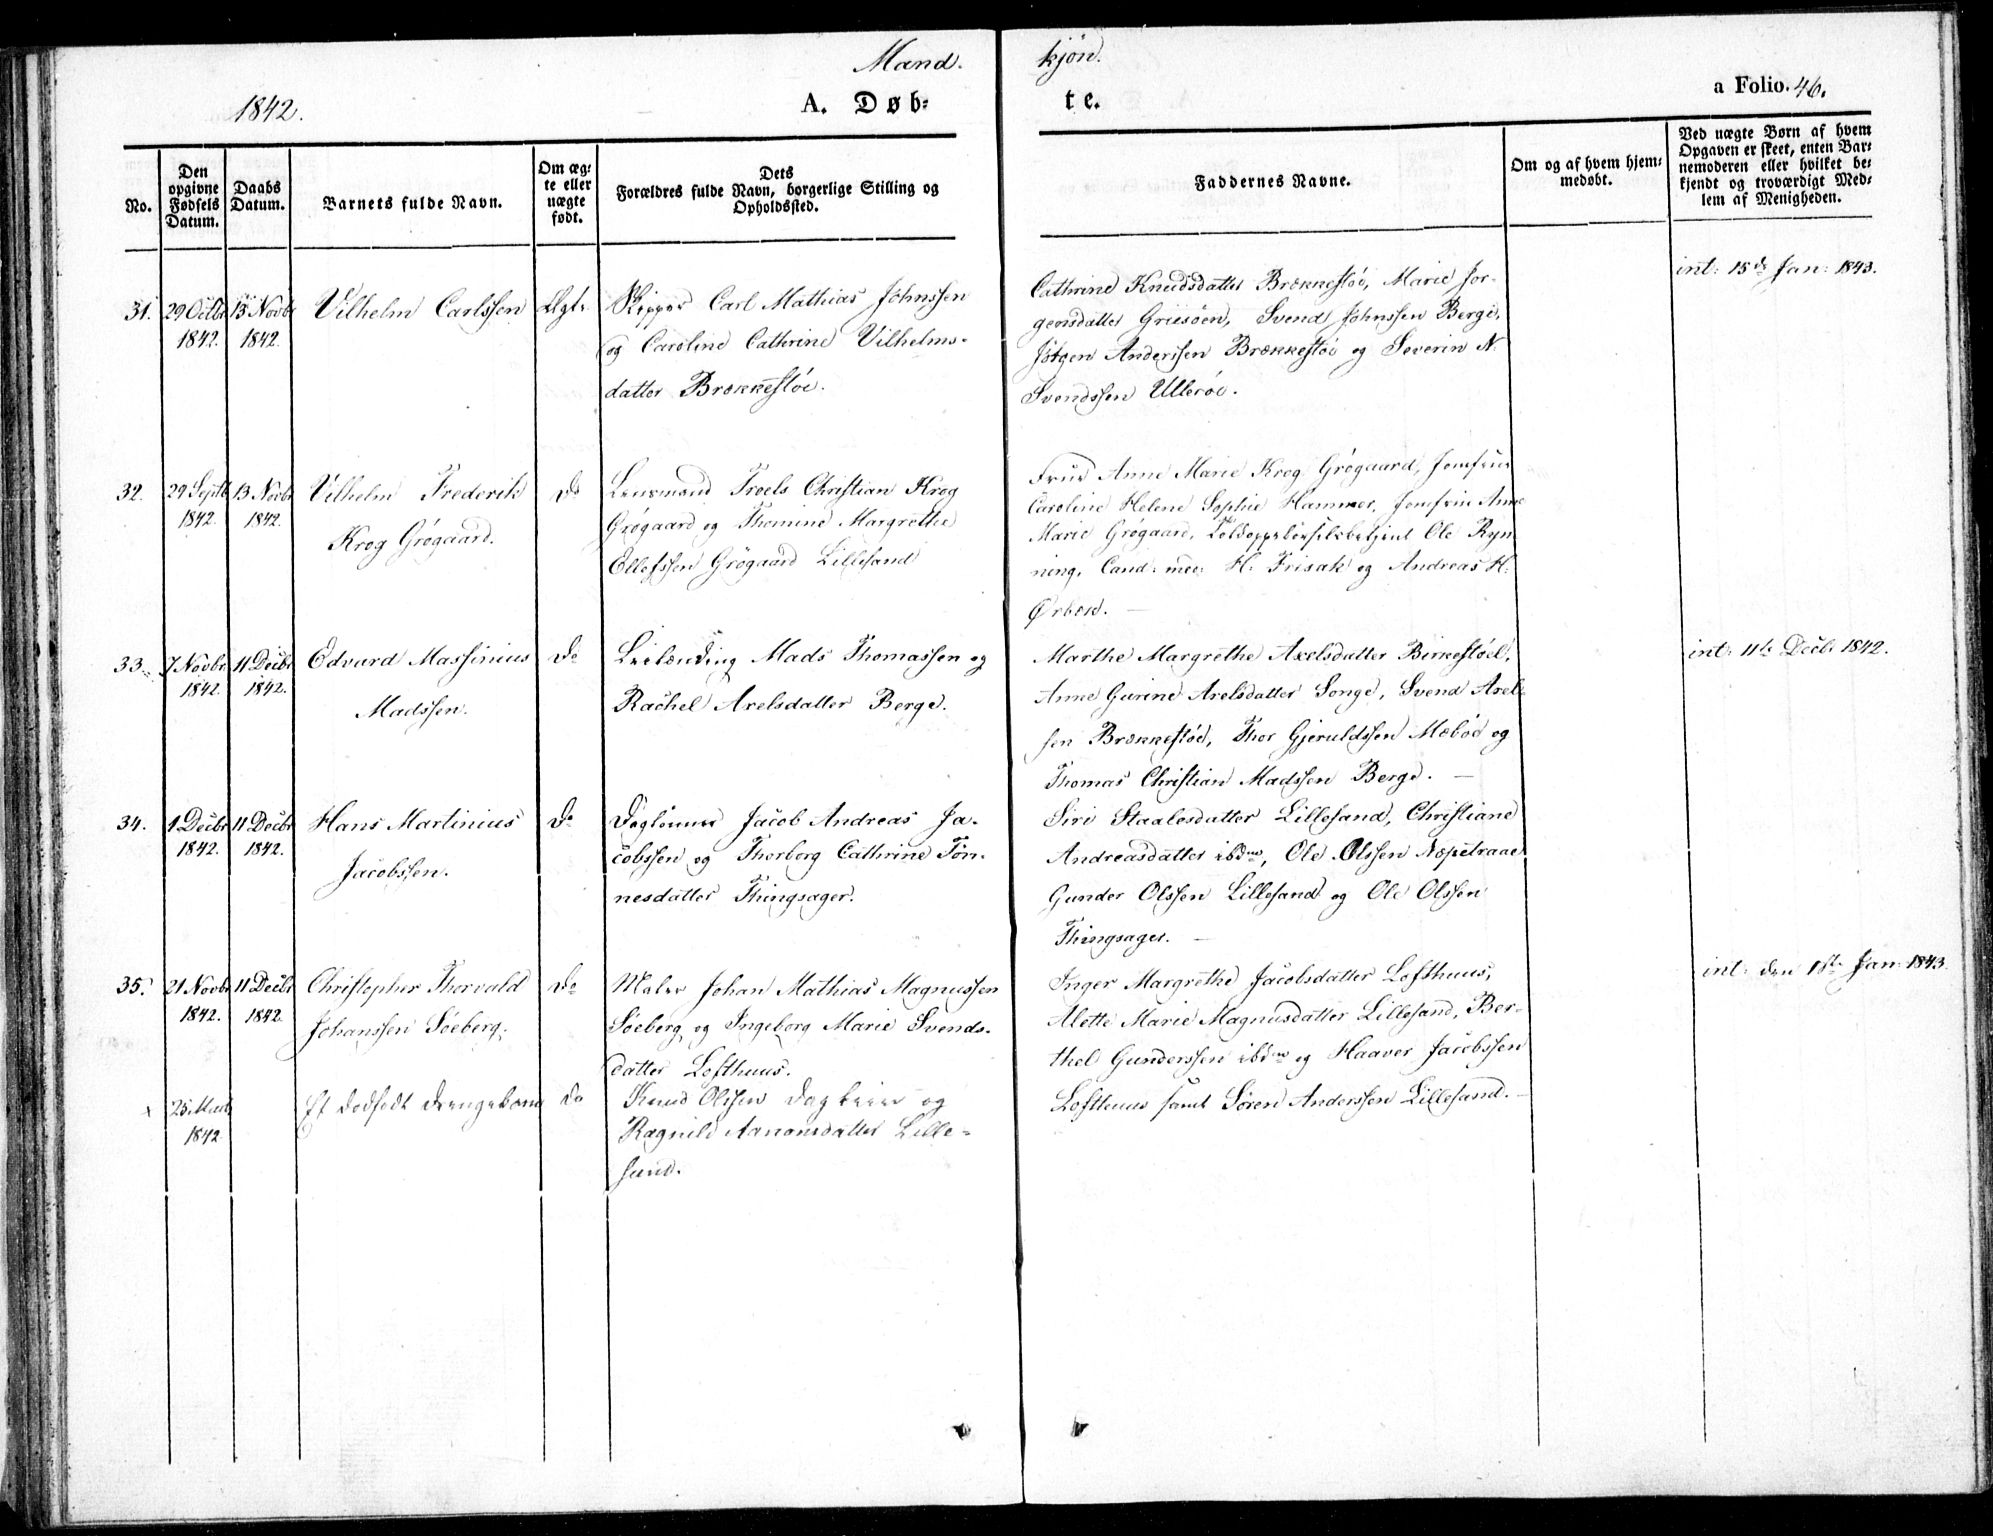 Mand.
kjøn.
1842.
A. Døb-
te.
a Folio. 46.
No.
Den
opgivne
Fødsels
Datum.
Daabs
Datum.
Barnets fulde Navn.
Om æg-
te eller
uægte
født.
Dets
Forældres fulde Navn, borgerlige Stilling og
Opholdssted.
Faddernes Navne.
Om og af hvem hjem-
medøbt.
Ved uægte Børn af hvem
Opgaven er skeet, enten Bar-
nemoderen eller hvilket be-
kjendt og troværdigt Med-
lem af Menigheden.
31.
29 Octbr
1842.
13 Novbr
1842.
Vilhelm Carlssen
Ægte
Skipper Carl Mathias Johnssen
og Caroline Cathrine Vilhelms-
datter Brækkestøe.
Cathrine Knudsdatter Brækkestøe, Marie Jør-
gensdatter Griisøen, Svend Johnssen Berge,
Jörgen Anderssen Brækkestøe og Severin N.
Svendssen Ulerøe.
int: 15de Jan: 1843.
32.
29 Septb
1842.
13 Novbr
1842.
Vilhelm Frederik
Krog Grøgaard.
Do
Lensmand Troels Christian Krog
Grøgaard og Thomine Margrethe
Ellefssen Grøgaard Lillesand
Frue Anne Marie Krog Grøgaard, Jomfrue
Caroline Helene Sophie Hammer, Jomfrue Anne
Marie Grøgaard, Toldopsynsbetjent Ole Ryn
ning, Cand: med: H. Frisak og Andreas H.
Ørbæk. —
33.
7 Novbr
1842.
11 Decbr
1842.
Edvard Massinius
Madssen.
Do
Leilænding Mads Thomassen og
Rachel Axelsdatter Berge.
Marthe Margrethe Axelsdatter Birkestøel,
Anne Gurine Axelsdatter Songe, Svend Axel-
sen Brækkestøe, Thor Gjeruldssen Mæbøe og
Thomas Christian Madssen Berge. —
int: 11te Decbr 1842.
34.
1 Decbr
1842.
11 Decbr
1842.
Hans Martinius
Jacobssen.
Do
Dagleiner Jacob Andreas Ja-
cobssen og Thorborg Cathrine Tön-
nesdatter Thingsager.
Siri Staalesdatter Lillesand, Christiane
Andreasdatter ibdm, Ole Olssen Næpetraae
Gunder Olssen Lillesand og Ole Olssen
Thingsager. —
35.
21 Novbr
1842.
11 Decbr
1842.
Christopher Thorvald
Johanssen Söeberg.
Do
Maler Johan Mathias Magnussen
Söeberg og Ingeborg Marie Svends-
datter Lofthuus.
Inger Margrethe Jacobsdatter Lofthuus,
Alette Marie Magnusdatter Lillesand, Ber-
thel Gunderssen ibdm og Haaver Jacobssen
Lofthuus samt Sören Anderssen Lillesand. —
int: den 1ste Jan: 1843.
25 Marts
1842
Et dødfødt Drengebarn
Do
Knud Olssen Dagleier og
Ragnild Aanonsdatter Lille-
sand.